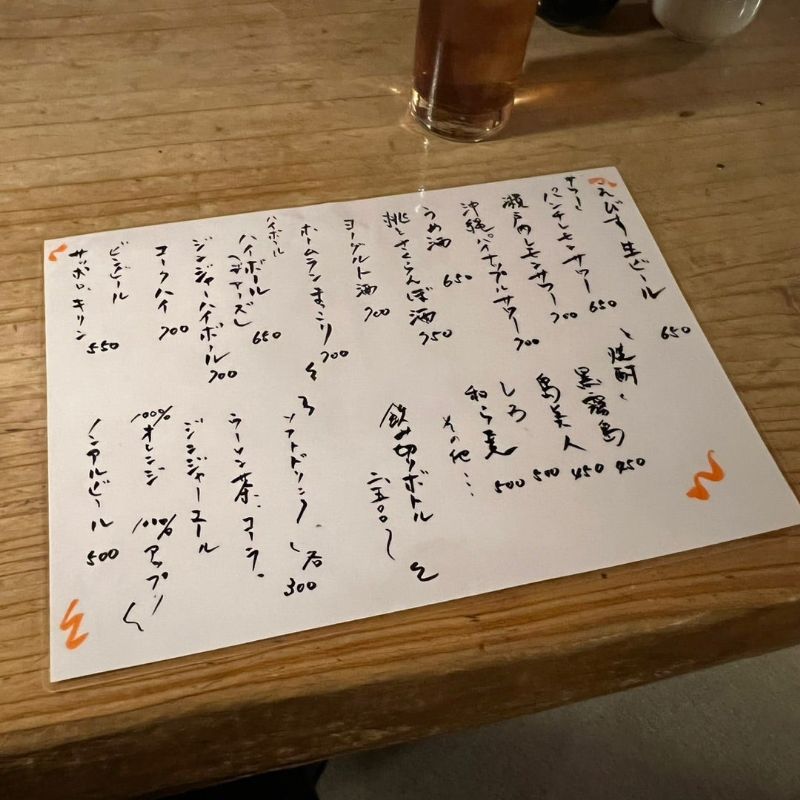 えびす生ビール 650
サワー
パンチレモンサワー 650
瀬戸内レモンサワー 700
沖縄パイナップルサワー 700
うめ酒 650
桃とさくらんぼ酒 750
ヨーグルト酒 700
ホームランまっこり 700
ハイボール
ハイボール(デュワーズ) 650
ジンジャーハイボール 700
コークハイ 700
ビンビール
サッポロ、キリン 550
焼酎
黒霧島 450
島美人 450
しろ 500
和ら麦 500
その他...
飲み切りボトル
二五〇〇〜
ソフトドリンク 各300
ウーロン茶、コーラ、
ジンジャーエール
100%オレンジ 100%アップル
ノンアルビール 500